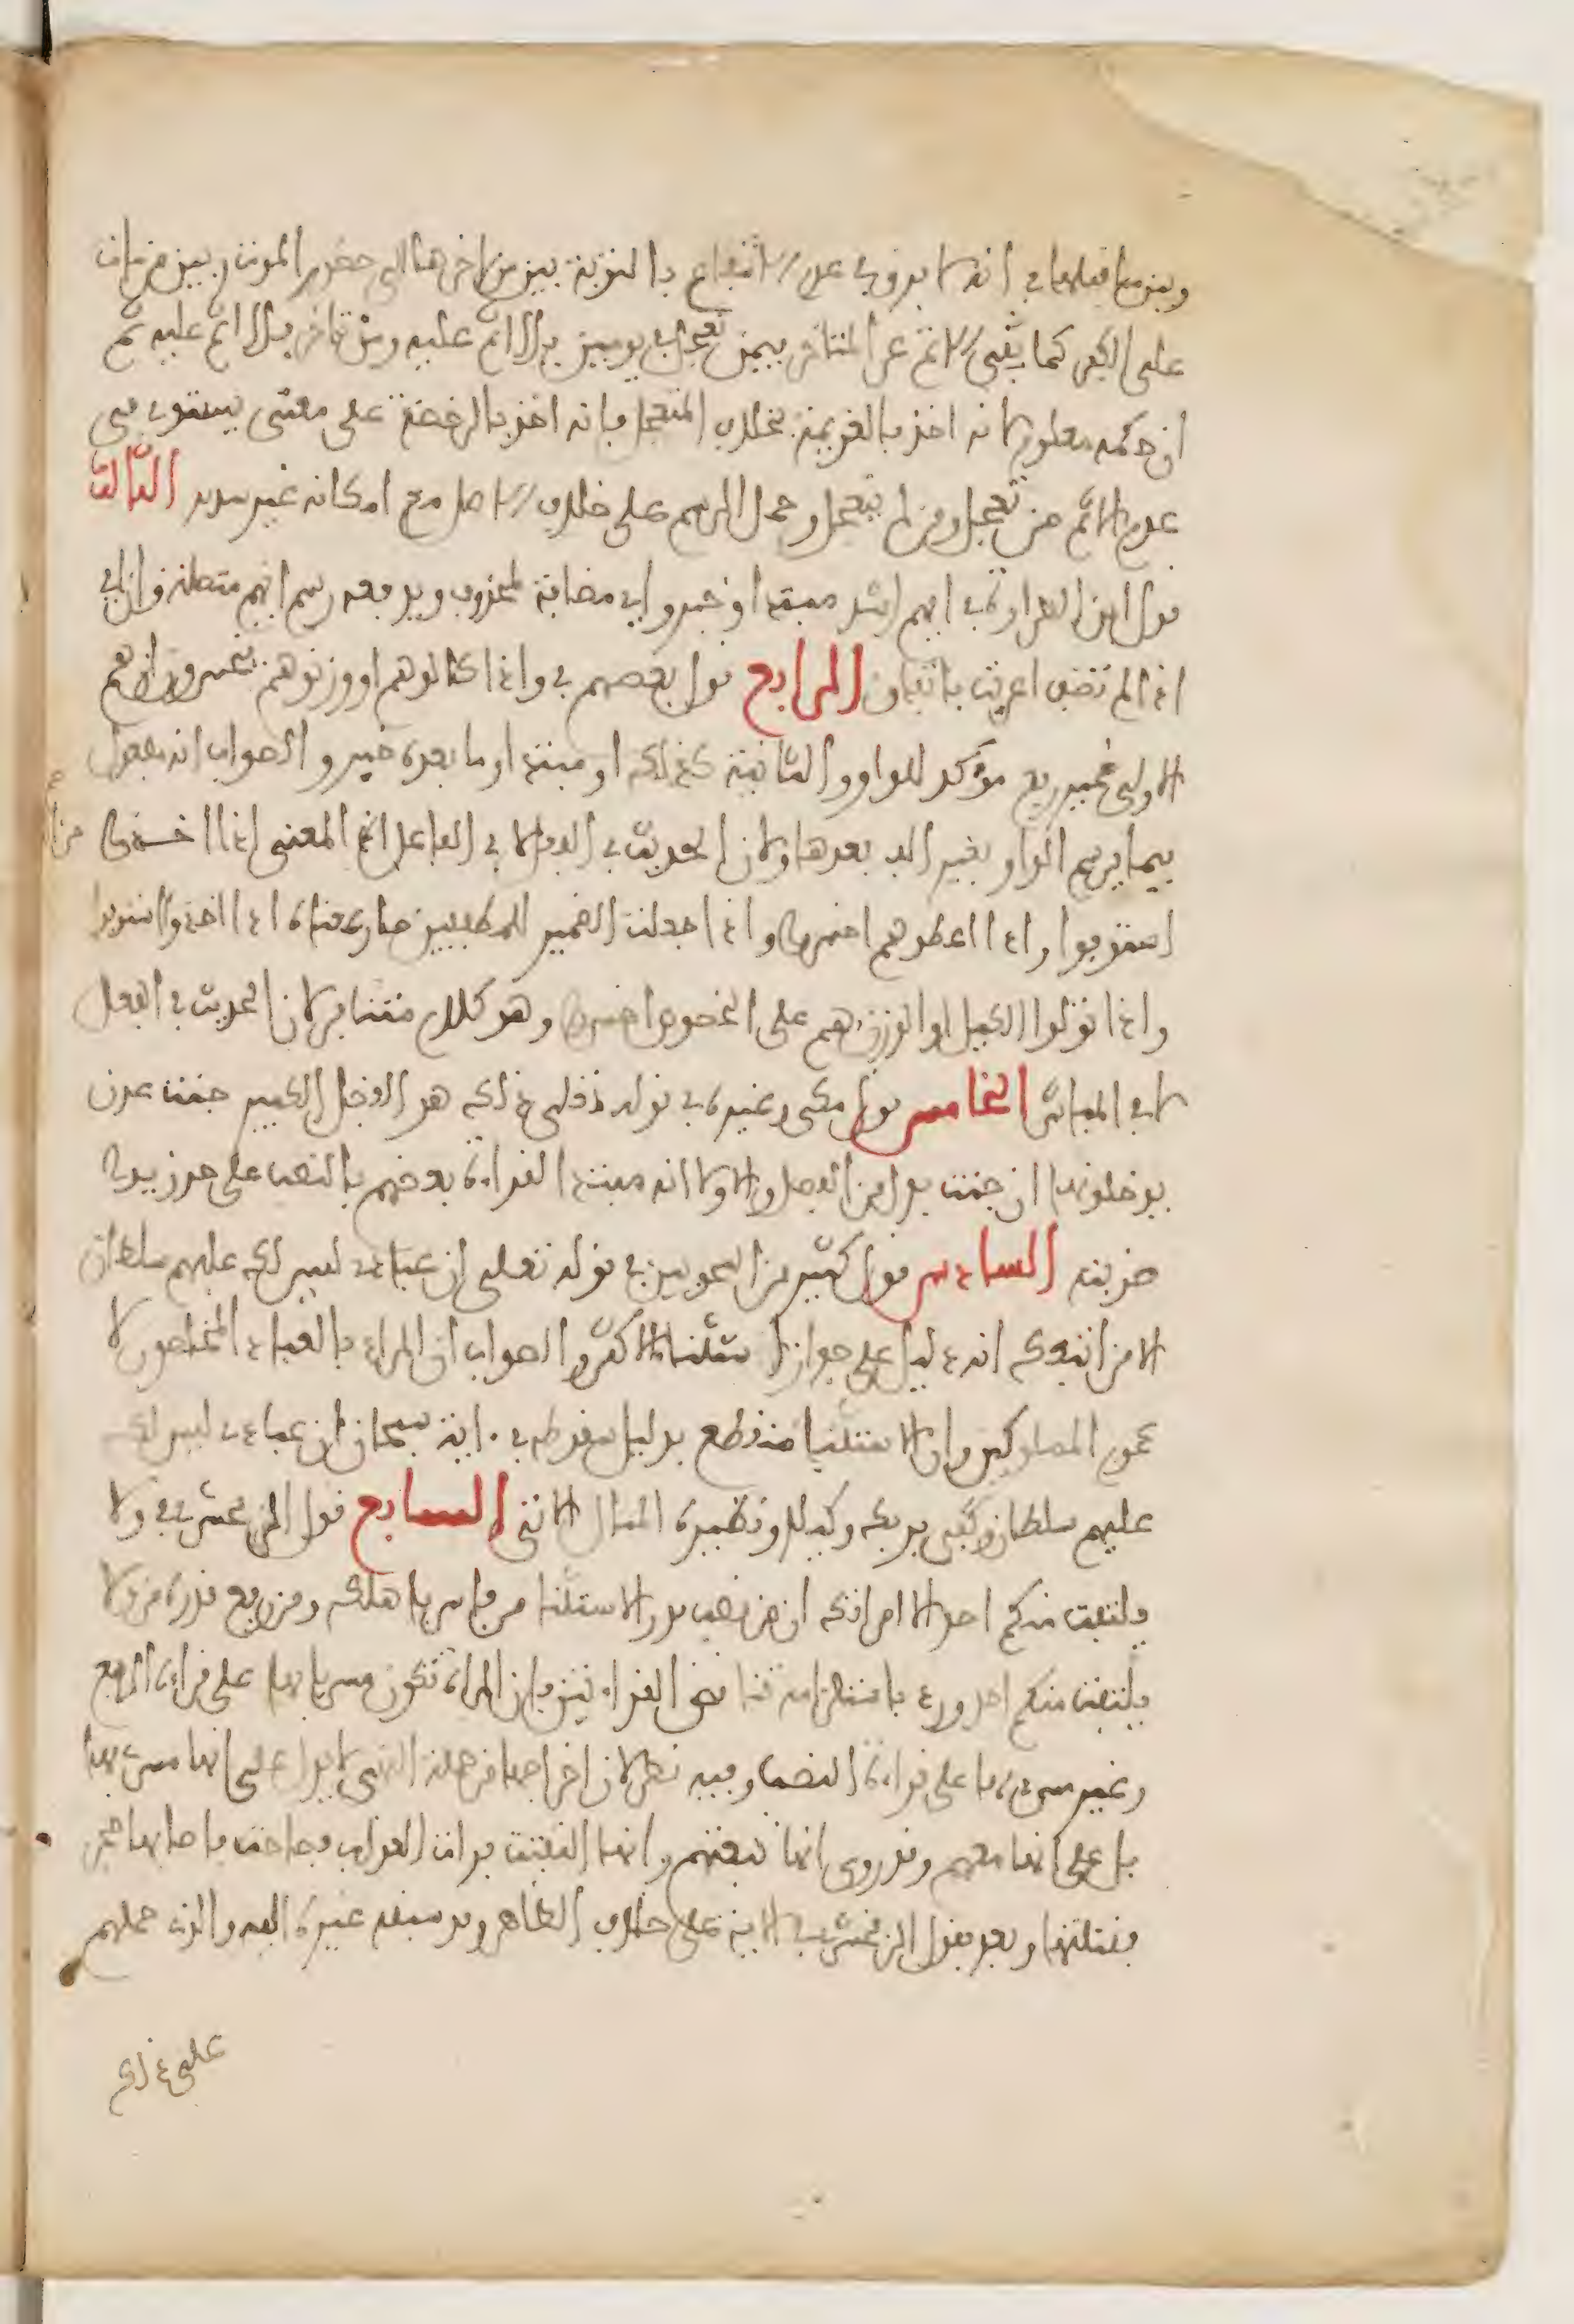 وبين ما قبلها في انه لا فرق في عدم الانتفاع بالتوبة بين من اخرها الى حضور الموت وبين من مات
على الكفر كما نفى الاثم عن المتاخر فيمن تعجل في يومين فلا اثم عليه ومن تاخر فلا اثم عليه مع
ان حكمه معلوم لانه اخذ بالعزيمة بخلاف المتعجل فانه اخذ بالرخصة على معنى يستوي في
عدم الاثم من تعجل ومن لم يتعجل وحمل الرسم على خلاف الاصل مع امكانه غير سديد الثالث
قول ابن الطراوة في ايهم اشد مبتدا وخبر واي مضافة لمحذوف ويدفعه رسم ايهم متصلة وان اي
اذا لم تضف اعربت باتفاق الرابع قول بعضهم في واذا كالوهم او وزنوهم يخسرون ان هم
الاولى ضمير رفع موكد للواو والثانية كذلك او مبتدا وما بعده خبر والصواب ان هم مفعول
فيهما لرسم الواو بغير الف بعدها ولان الحديث في الفعل لا في الفاعل اذ المعنى اذا اخذوا من الناس
استوفوا واذا اعطوهم اخسروا واذا جعلت الضمير للمطففين صار معناه اذا اخذوا استوفوا
واذا تولوا الكيل او الوزن هم على الخصوص اخسروا وهو كلام متنافر لان الحديث في الفعل
لا في المباشر الخامس قول مكي وغيره في قوله تعلى ذلك هو الفضل الكبير جنت عدن
يدخلونها ان جنت بدل من الفضل والاولى انه مبتدا لقراءة بعضهم بالنصب على حد زيدا
ضربته السادس قول كثير من النحويين في قوله تعلى ان عبادي ليس لك عليهم سلطان
الا من اتبعك انه دليل على جواز استثناء الاكثر والصواب ان المراد بالعباد المخلصون لا
عموم المملوكين وان الاستثناء منقطع بدليل سقوطه في ءاية سبحان ان عبادي ليس لك
عليهم سلطان وكفى بربك وكيلا ونظيره المثال الاتي السابع قول الزمخشري في ولا
يلتفت منكم احد الا امراتك ان من نصب قدر الاستثناء من فاسر باهلك ومن رفع قدره من ولا
يلتفت منكم احد ورد باستلزامه تناقض القراءتين فان المراة تكون مسريا بها على قراءة الرفع
وغير مسرى بها على قراءة النصب وفيه نظر لان اخراجها من جملة النهي لا يدل على انها مسرى بها
بل على انها معهم وقد روي انها تبعتهم وانها التفتت فرات العذاب فصاحت فاصابها حجر
فقتلها وبعد فقول الزمخشري في الاية على خلاف الظاهر وقد سبقه غيره اليه والذي حملهم
على ذلك